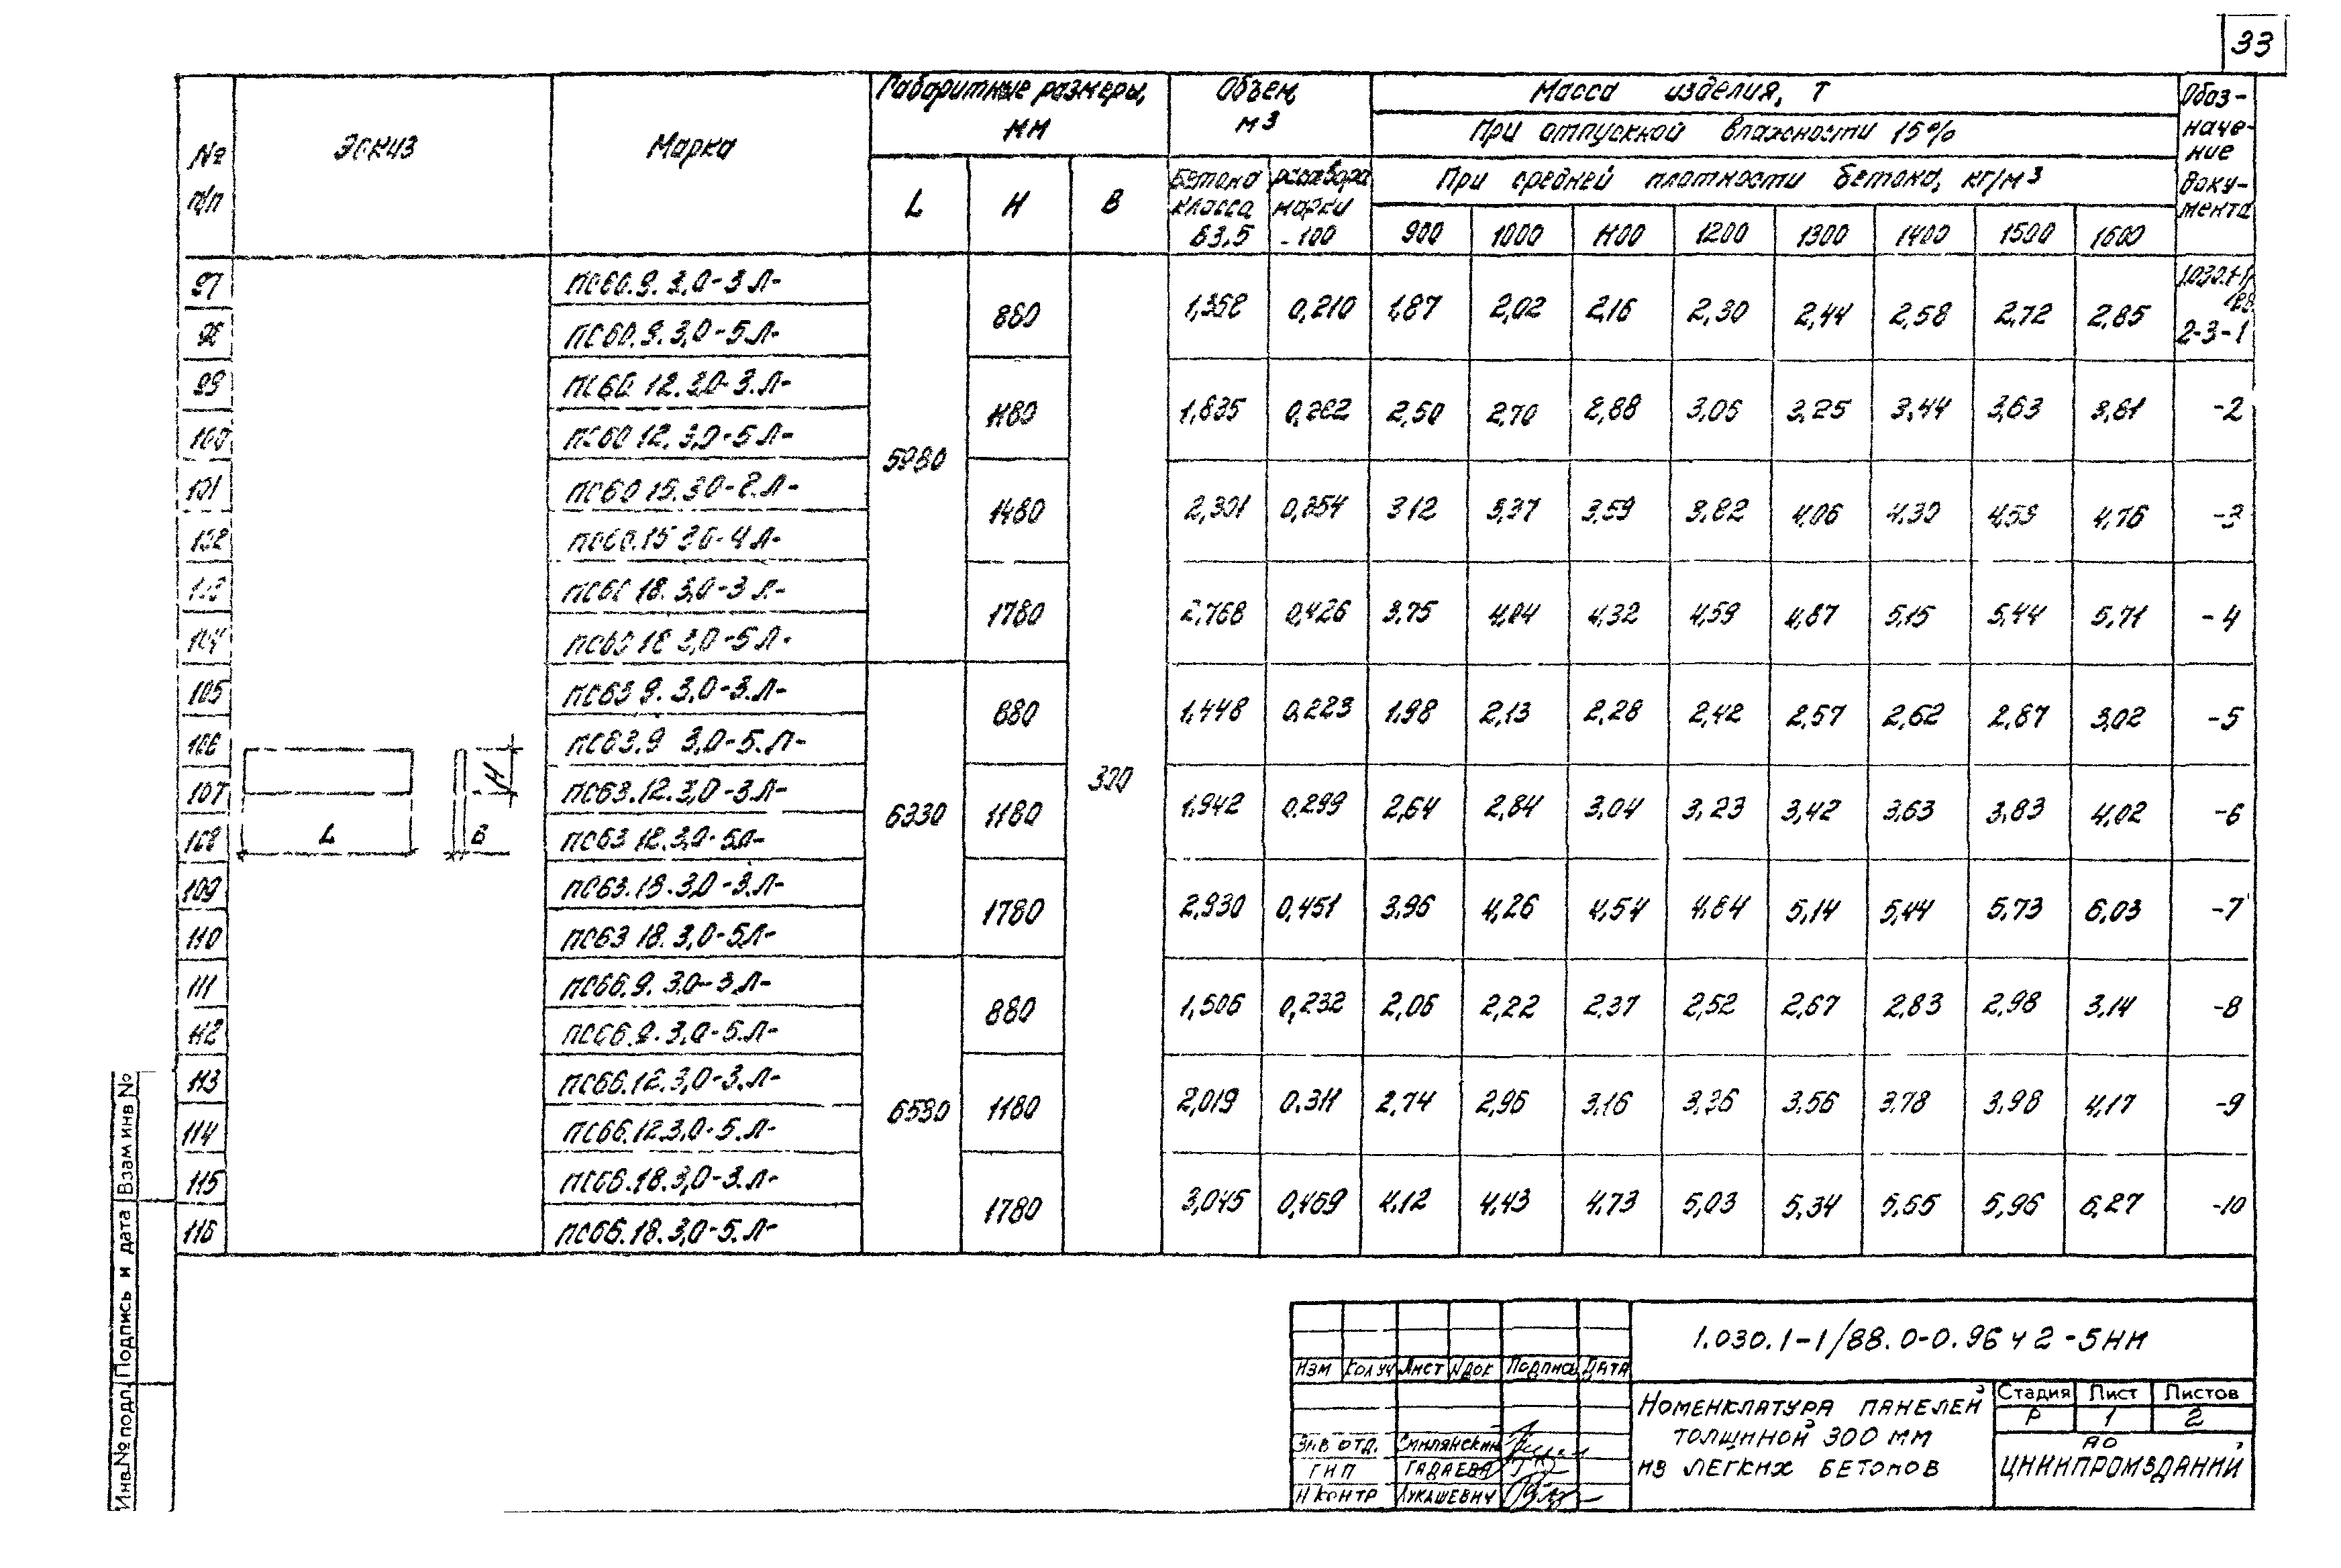 33
№ п/п
Эскиз
Марка
Габаритные размеры, мм
Объем, м3
Масса изделия, т
При отпускной влажности 15%
При средней плотности бетона, кг/м3
Обоз-
наче-
ние
доку-
мента
L H B
бетона класса В3,5
раствора марки -100
900 1000 1100 1200 1300 1400 1500 1600
97 ПС60.9.3,0-3Л-
98 ПС60.9.3,0-5Л-
5980 880 300 1,358 0,210 1,87 2,02 2,16 2,30 2,44 2,58 2,72 2,85 2-3-1
99 ПС60 12.3,0-3.Л-
100 ПС60 12.3,0-5Л-
1180 1,835 0,282 2,50 2,70 2,88 3,06 3,25 3,44 3,63 3,81 -2
101 ПС60 15.30-2.Л-
102 ПС60.15 30-4Л-
1480 2,301 0,354 3,12 3,37 3,59 3,82 4,06 4,30 4,53 4,76 -3
103 ПС60 18.3,0-3Л-
104 ПС60 18 3,0-5Л-
1780 2,768 0,426 3,75 4,04 4,32 4,59 4,87 5,15 5,44 5,71 -4
105 ПС63 9.3,0-3.Л-
106 ПС63.9 3,0-5.Л-
6330 880 1,448 0,223 1,98 2,13 2,28 2,42 2,57 2,62 2,87 3,02 -5
107 ПС63.12.3,0-3Л-
108 ПС63 12.3,0-5Л-
1180 1,942 0,299 2,64 2,84 3,04 3,23 3,42 3,63 3,83 4,02 -6
L B H
109 ПС63.18.3,0-3.Л-
110 ПС63 18.3,0-5Л-
1780 2,930 0,451 3,96 4,26 4,54 4,84 5,14 5,44 5,73 6,03 -7
111 ПС66.9.3,0-3Л-
112 ПС66.9.3,0-5.Л-
6580 880 1,506 0,232 2,06 2,22 2,37 2,52 2,67 2,83 2,98 3,14 -8
113 ПС66.12.3,0-3.Л-
114 ПС66.12.3,0-5.Л-
1180 2,019 0,311 2,74 2,96 3,16 3,36 3,56 3,78 3,98 4,17 -9
115 ПС66.18.3,0-3.Л-
116 ПС66.18.3,0-5.Л-
1780 3,045 0,469 4,12 4,43 4,73 5,03 5,34 5,65 5,96 6,27 -10
Инв.№ подл. Подпись и дата Взам инв №
1.030.1-1/88.0-0.96 ч 2-5НИ
Изм Кол уч Лист №док Подпись Дата
Номенклатура панелей
толщиной 300 мм
из легких бетонов
Стадия Лист Листов
Р 1 2
Зав отд. Смилянский
ГИП Гадаева
Н контр Лукашевич
АО
ЦНИИПРОМЗДАНИЙ